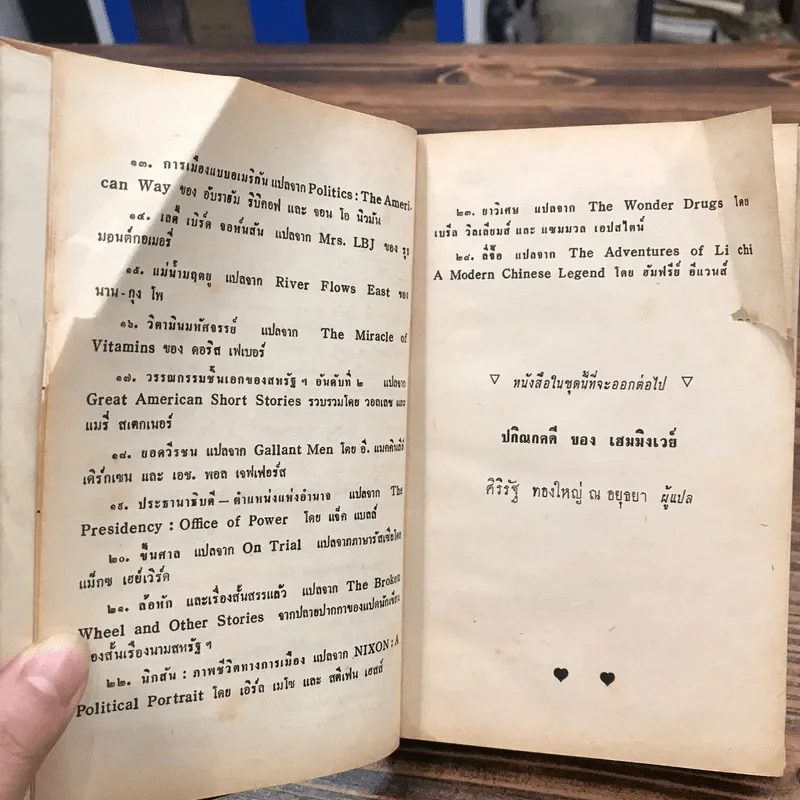 ๑๓. การเมืองแบบอเมริกัน แปลจาก Politics : The Ameri-
can Way ของ อับราฮัม ริบิคอฟ และ จอน โอ นิวมัน
๑๔. เลดี้ เบิร์ด จอห์นสัน แปลจาก Mrs. LBJ ของ รูธ
มอนต์กอเมอรี่
๑๕. แม่น้ำมฤตยู แปลจาก River Flows East ของ
นาน-กุง โพ
๑๖. วิตามินมหัศจรรย์ แปลจาก The Miracle of
Vitamins ของ ดอริส เฟเบอร์
๑๗. วรรณกรรมชั้นเอกของสหรัฐ ฯ อันดับที่ ๒ แปลจาก
Great American Short Stories รวบรวมโดย วอลเลซ และ
แมรี่ สเตกเนอร์
๑๘. ยอดวีรชน แปลจาก Gallant Men โดย อี. แมคคินลีย์
เดิร์กเซน และ เอช. พอล เจฟเฟอร์ส
๑๙. ประธานาธิบดี – ตำแหน่งแห่งอำนาจ แปลจาก The
Presidency : Office of Power โดย แจ็ค แบลล์
๒๐. ขึ้นศาล แปลจาก On Trial แปลจากภาษารัสเซียโดย
แม็กซ เฮย์เวิร์ด
๒๑. ล้อหัก และเรื่องสั้นสรรแล้ว แปลจาก The Broken
Wheel and Other Stories จากปลายปากกาของแปดนักเขียน
ของสั้นเรืองนามสหรัฐ ฯ
๒๒. นิกสัน : ภาพชีวิตทางการเมือง แปลจาก NIXON : A
Political Portrait โดย เอิร์ล เมโซ และ สตีเฟ่น เฮสส์
๒๓. ยาวิเศษ แปลจาก The Wonder Drugs โดย
เบรีล วิลเลียมส์ และ แซมมวล เอปสไตน์
๒๔. ลี่จื้อ แปลจาก The Adventures of Li chi
A Modern Chinese Legend โดย ฮัมฟรีย์ อีแวนส์
หนังสือในชุดนี้ที่จะออกต่อไป
ปกิณกคดี ของ เฮมมิงเวย์
ศิริรัฐ ทองใหญ่ ณ อยุธยา ผู้แปล